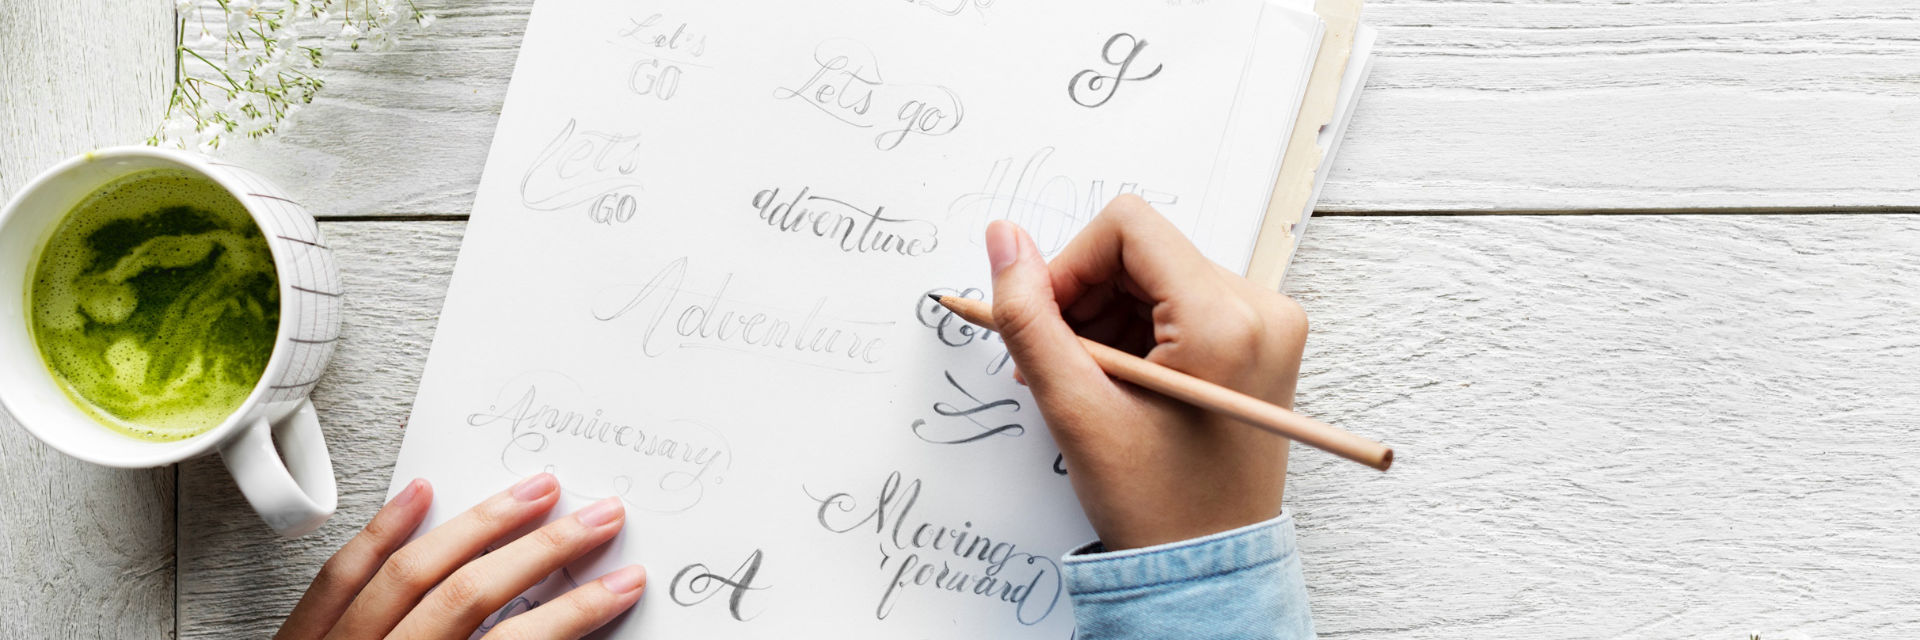 Let's
GO
Lets go
g
Let's
GO
adventure
HOME
Adventure
Anniversary
Moving
forward
A